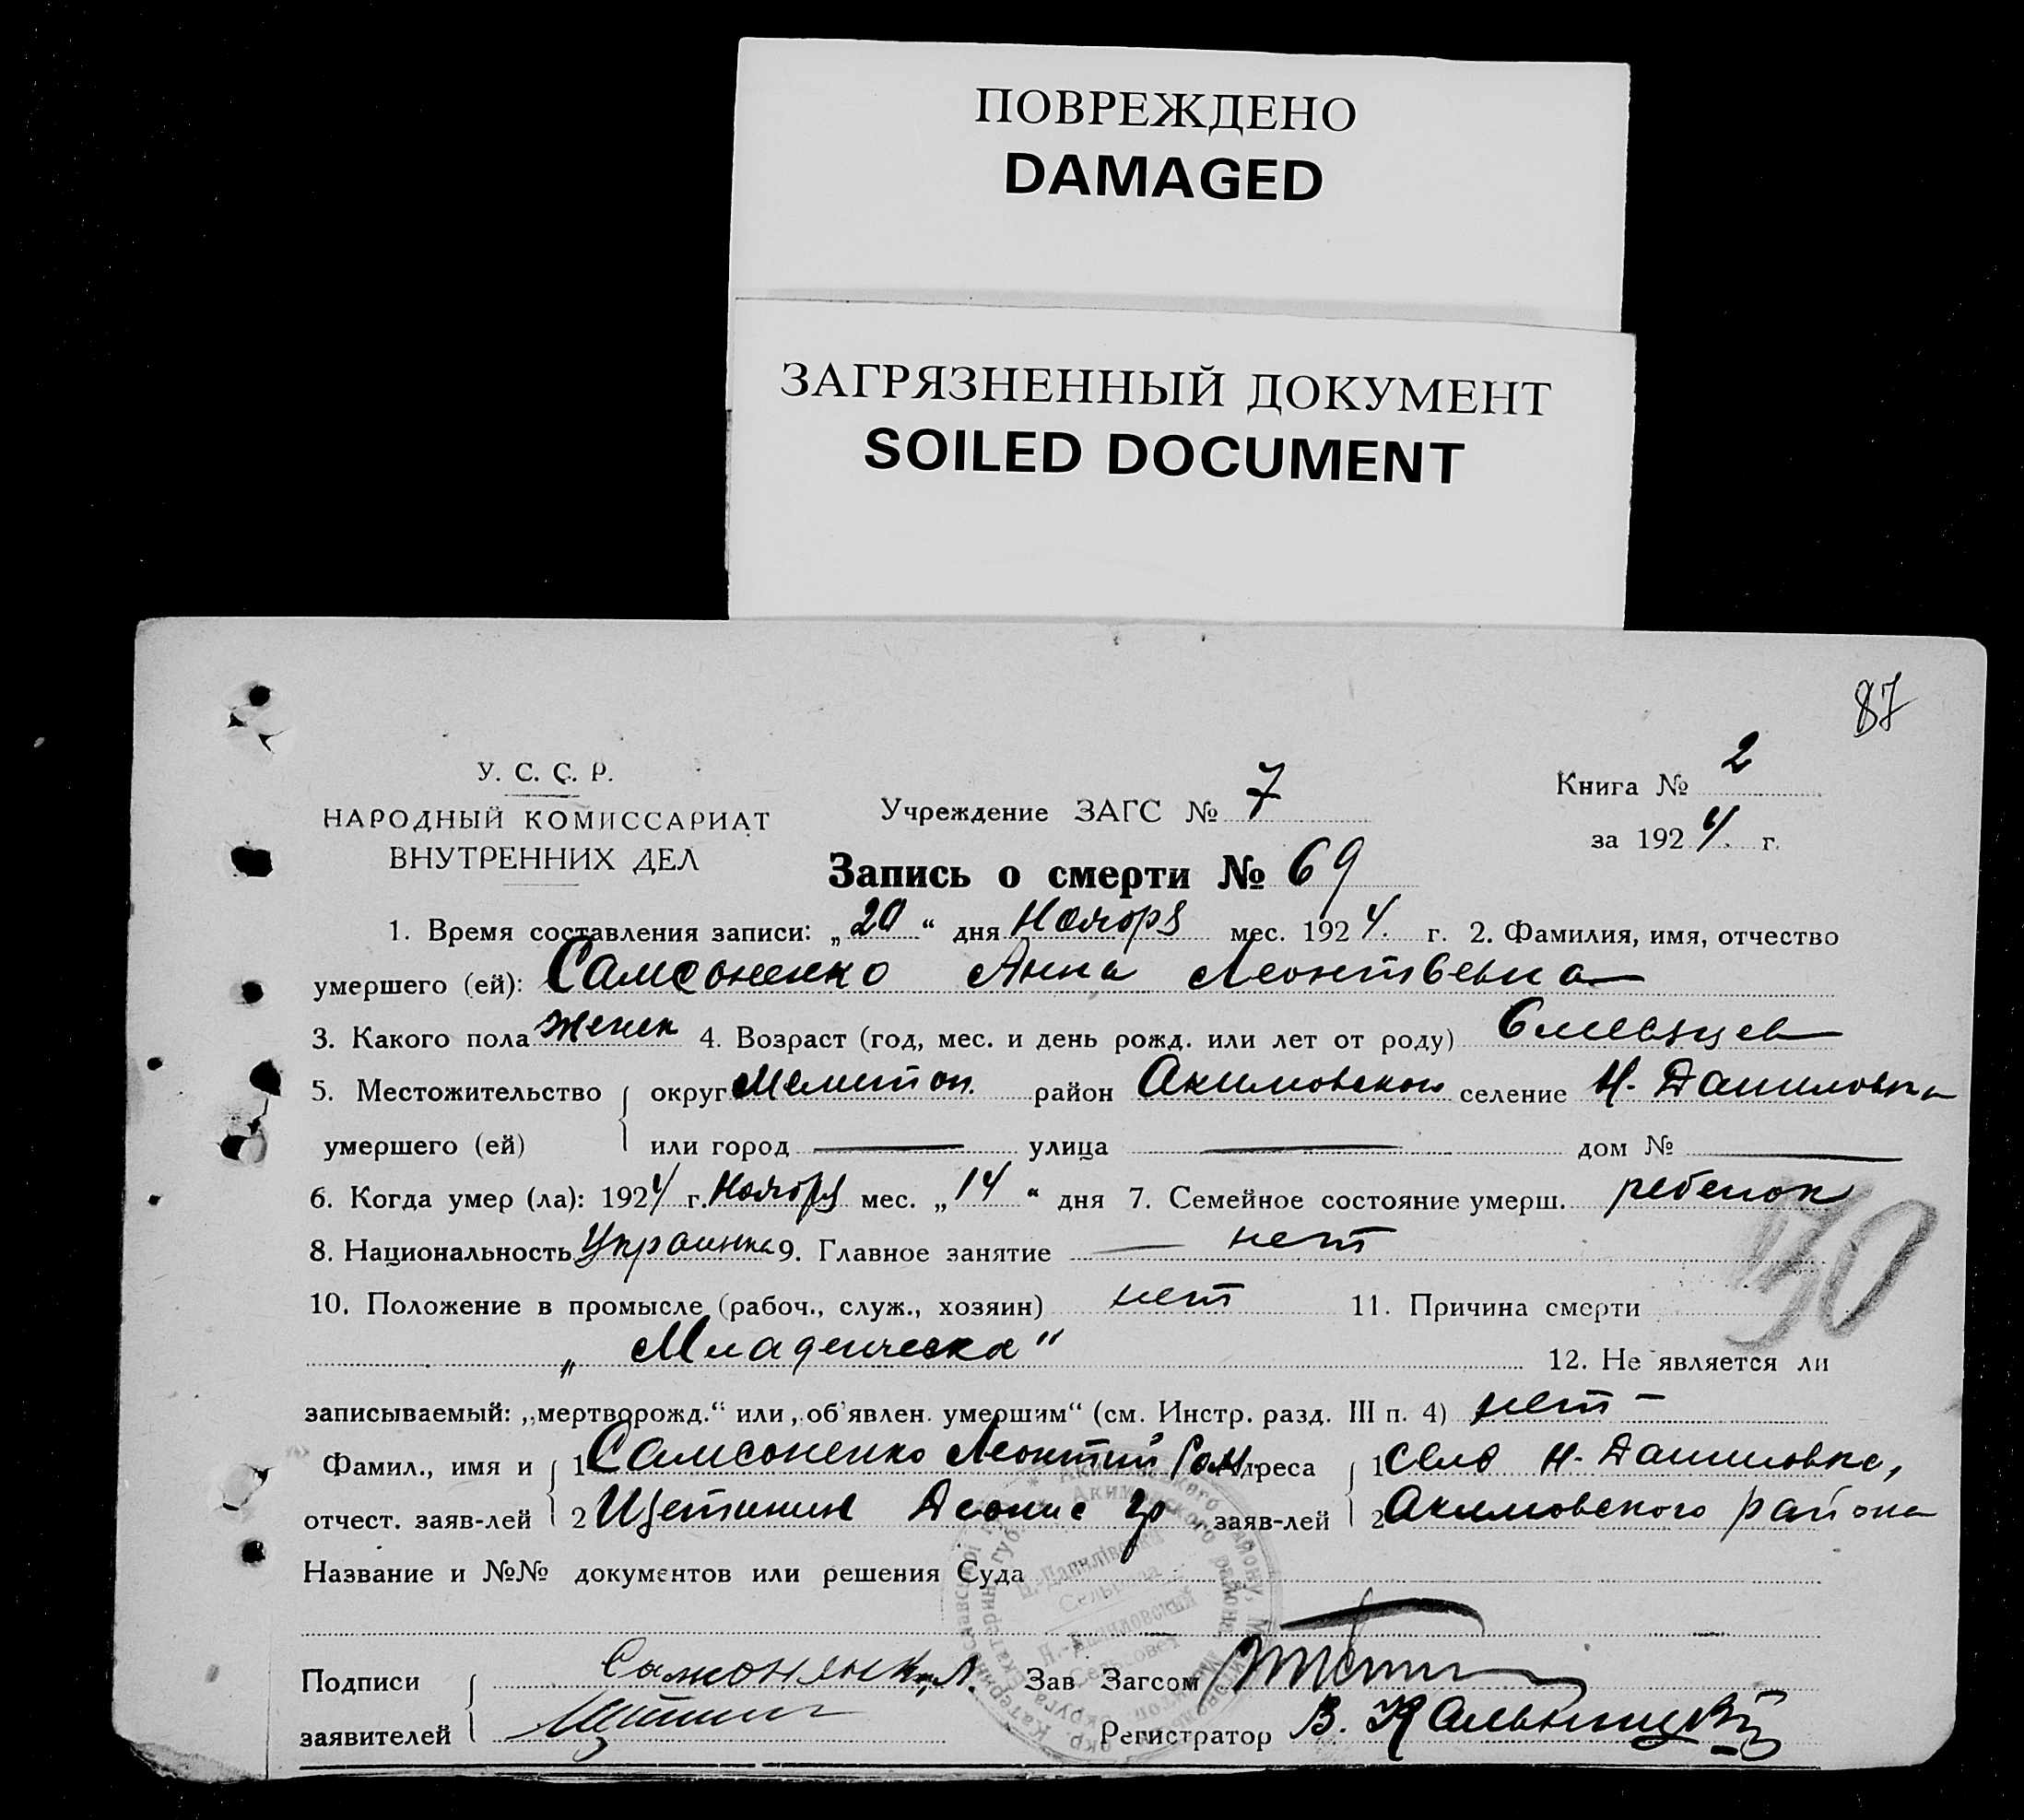 ПОВРЕЖДЕНО
DAMAGED
ЗАГРЯЗНЕННЫЙ ДОКУМЕНТ
SOILED DOCUMENT
87
У. С. С. Р.
НАРОДНЫЙ КОМИССАРИАТ
ВНУТРЕННИХ ДЕЛ
Учреждение ЗАГС № 7
Книга № 2
за 1924. г.
Запись о смерти № 69
1. Время составления записи: „20“ дня Ноября мес. 1924. г. 2. Фамилия, имя, отчество
умершего (ей): Самсоненко Анна Леонтьевна
3. Какого пола женск 4. Возраст (год, мес. и день рожд. или лет от роду) 6 месяцев
5. Местожительство округ Мелитоп. район Акимовского селение Н. Даниловка
умершего (ей) или город — улица — дом № —
6. Когда умер (ла): 1924 г. Ноября мес. „14“ дня 7. Семейное состояние умерш. ребенок
8. Национальность Украинка 9. Главное занятие — нет
10. Положение в промысле (рабоч., служ., хозяин) нет 11. Причина смерти
„Младенческа“
12. Не является ли
записываемый: „мертворожд.“ или „об'явлен. умершим“ (см. Инстр. разд. III п. 4) нет —
Фамил., имя и 1 Самсоненко Леонтий Адреса 1 Село Н. Даниловка,
отчест. заяв-лей 2 Щетинин Денис Гр заяв-лей 2 Акимовского района
Название и №№ документов или решения Суда
Подписи Зав. Загсом
заявителей Регистратор В.
50